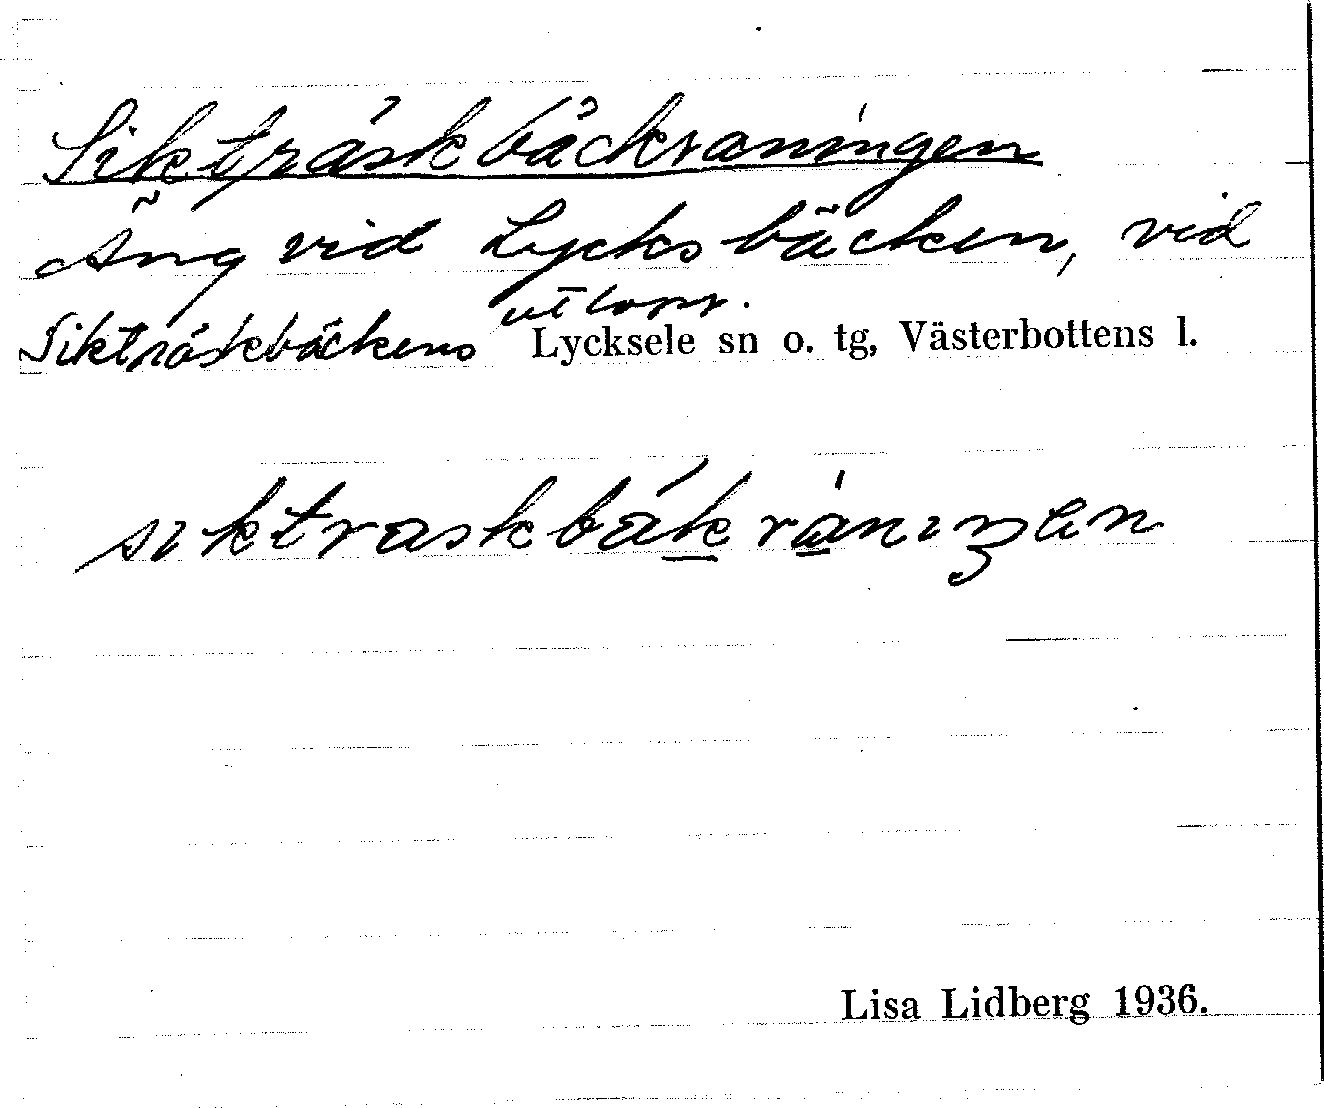 Sikträskbäckraningen
Äng vid Lycksbäcken, vid
Sikträskbäckens utlopp.
Lycksele sn o. tg, Västerbottens l.
sıktraskbäkránıŋan
Lisa Lidberg 1936.